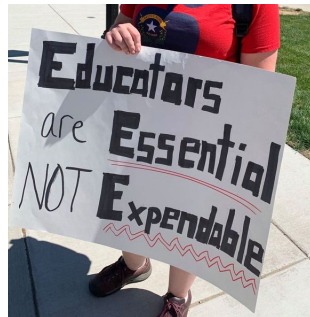 Educators
are Essential
NOT Expendable